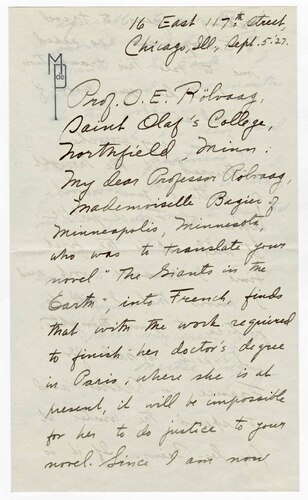 16 East 117th Street,
Chicago, Ill., Sept. 5, '27.
M de P
Prof. O. E. Rölvaag,
Saint Olaf's College,
Northfield, Minn.:
My dear Professor Rolvaag,
Mademoiselle Bagier of
Minneapolis, Minnesota,
who was to translate your
novel "The Giants in the
Earth", into French, finds
that with the work required
to finish her doctor's degree
in Paris, where she is at
present, it will be impossible
for her to do justice to your
novel. Since I am now